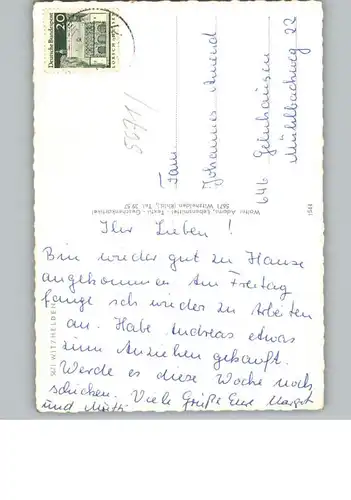 Deutsche Bundespost
20
LORSCH/HESSEN
5671/
Fam.
Johannes Amend
646 Gelnhausen
Mühlbachweg 22
Walter Adams, Lebensmittel - Textil - Geschenkartikel
5671 Witzhelden (Rhld.), Tel. 39 57
1568
5671 WITZHELDEN
Ihr Lieben!
Bin wieder gut zu Hause
angekommen. Am Freitag
fange ich wieder zu Arbeiten
an. Habe Andreas etwas
zum Anziehen gekauft.
Werde es diese Woche noch
schicken. Viele Grüße Eure Margot
und Mutti